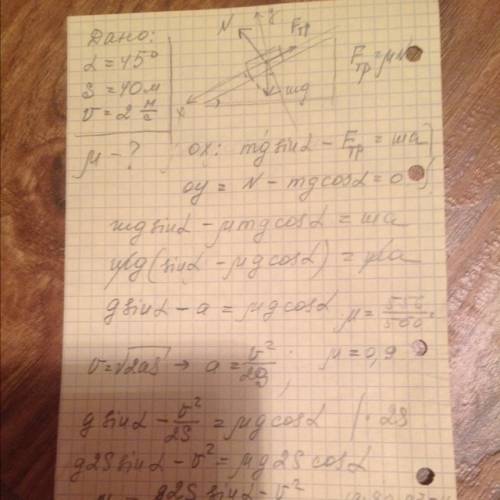 Дано:
α = 45°
S = 40м
v = 2 м/с
μ - ?
N y Fтр
x mg
Fтр = μN
ox: mg sinα - Fтр = ma
oy = N - mg cosα = 0
mg sinα - μmg cosα = ma
mg(sinα - μg cosα) = ma
g sinα - a = μg cosα
μ = 556/560 =
v = √2aS → a = v²/2S;
μ = 0,9
g sinα - v²/2S = μg cosα | · 2S
g2S sinα - v² = μg2S cosα
g2S sinα - v²